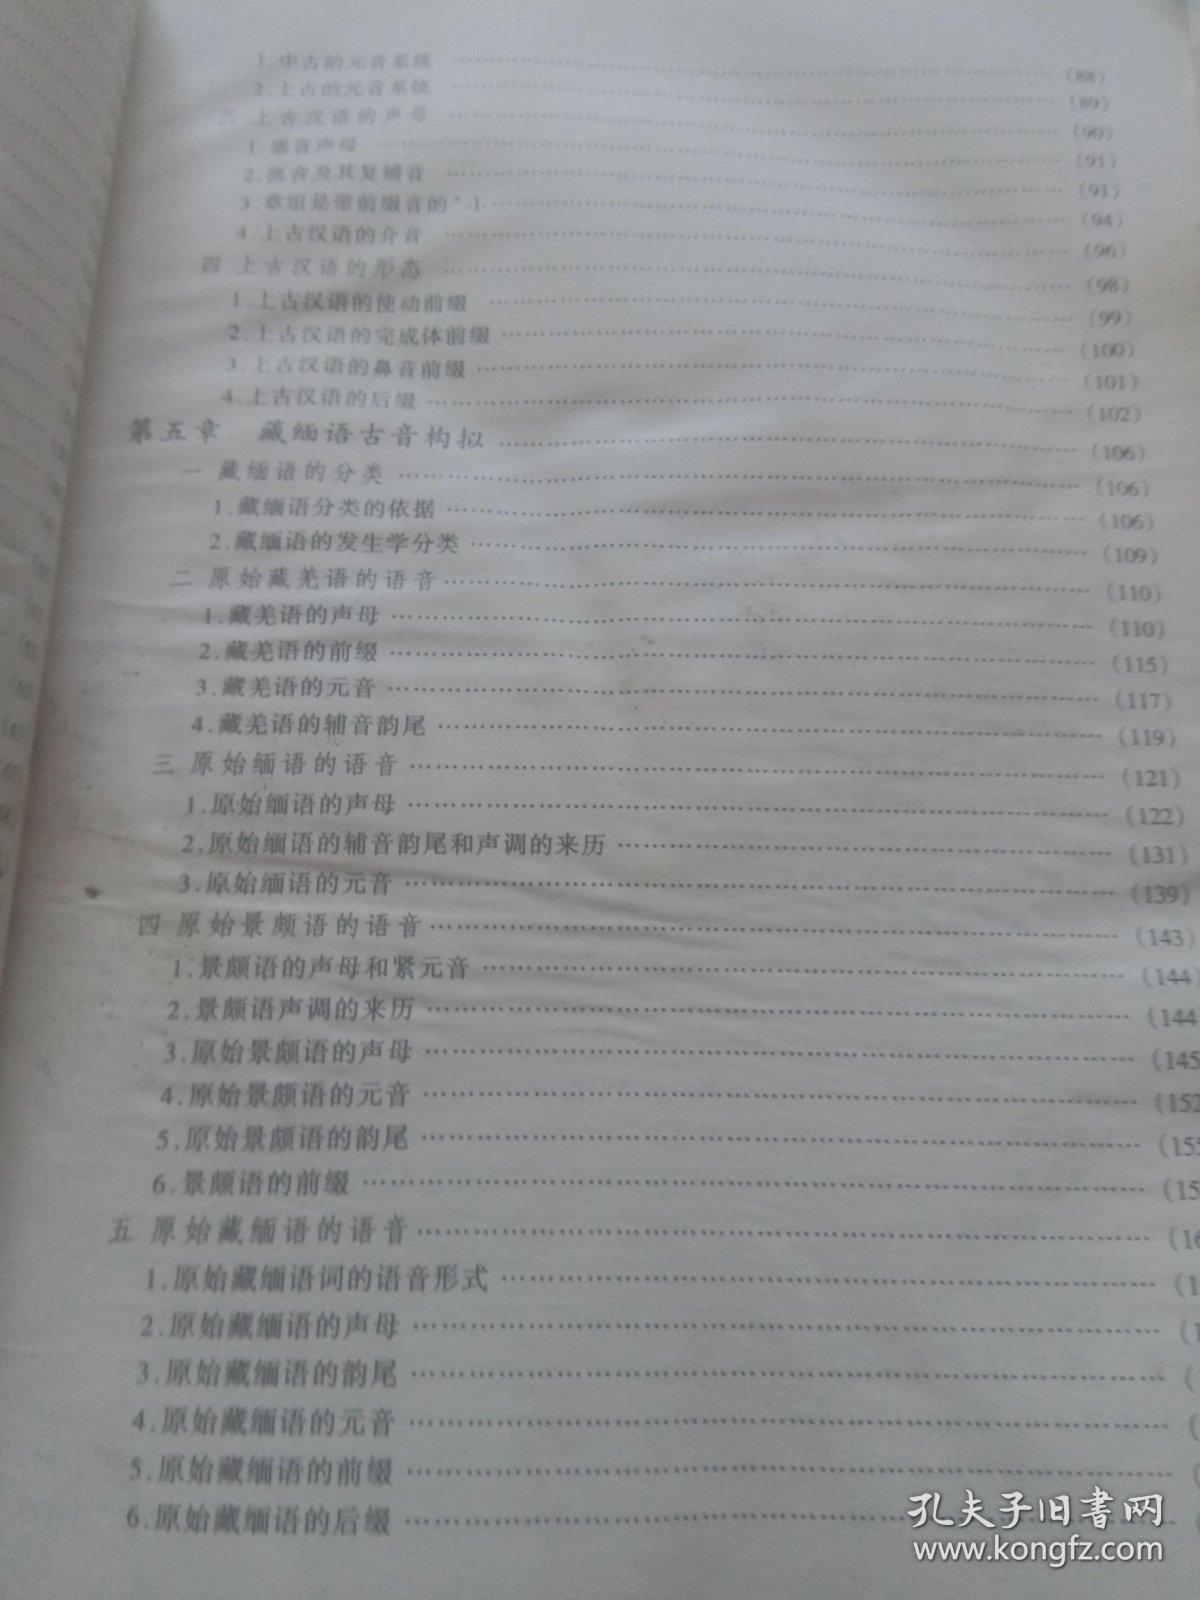 1.中古的元音系统 ……………… (88)
2.上古的元音系统 ……………… (89)
三 上古汉语的声母 ……………… (90)
1.塞音声母 ……………… (91)
2.流音及其复辅音 ……………… (91)
3.章组是带前缀音的 ……………… (94)
4.上古汉语的介音 ……………… (96)
四 上古汉语的形态 ……………… (98)
1.上古汉语的使动前缀 ……………… (99)
2.上古汉语的完成体前缀 ……………… (100)
3.上古汉语的鼻音前缀 ……………… (101)
4.上古汉语的后缀 ……………… (102)
第五章 藏缅语古音构拟 ……………… (106)
一 藏缅语的分类 ……………… (106)
1.藏缅语分类的依据 ……………… (106)
2.藏缅语的发生学分类 ……………… (109)
二 原始藏羌语的语音 ……………… (110)
1.藏羌语的声母 ……………… (110)
2.藏羌语的前缀 ……………… (115)
3.藏羌语的元音 ……………… (117)
4.藏羌语的辅音韵尾 ……………… (119)
三 原始缅语的语音 ……………… (121)
1.原始缅语的声母 ……………… (122)
2.原始缅语的辅音韵尾和声调的来历 ……………… (131)
3.原始缅语的元音 ……………… (139)
四 原始景颇语的语音 ……………… (143)
1.景颇语的声母和紧元音 ……………… (144)
2.景颇语声调的来历 ……………… (144
3.原始景颇语的声母 ……………… (145
4.原始景颇语的元音 ……………… (152
5.原始景颇语的韵尾 ……………… (155
6.景颇语的前缀 ……………… (15
五 原始藏缅语的语音 ……………… (16
1.原始藏缅语词的语音形式 ……………… (1
2.原始藏缅语的声母 ……………… (1
3.原始藏缅语的韵尾 ……………… (
4.原始藏缅语的元音 ……………… (
5.原始藏缅语的前缀 ……………… (
6.原始藏缅语的后缀 ………………
孔夫子旧书网
www.kongfz.com